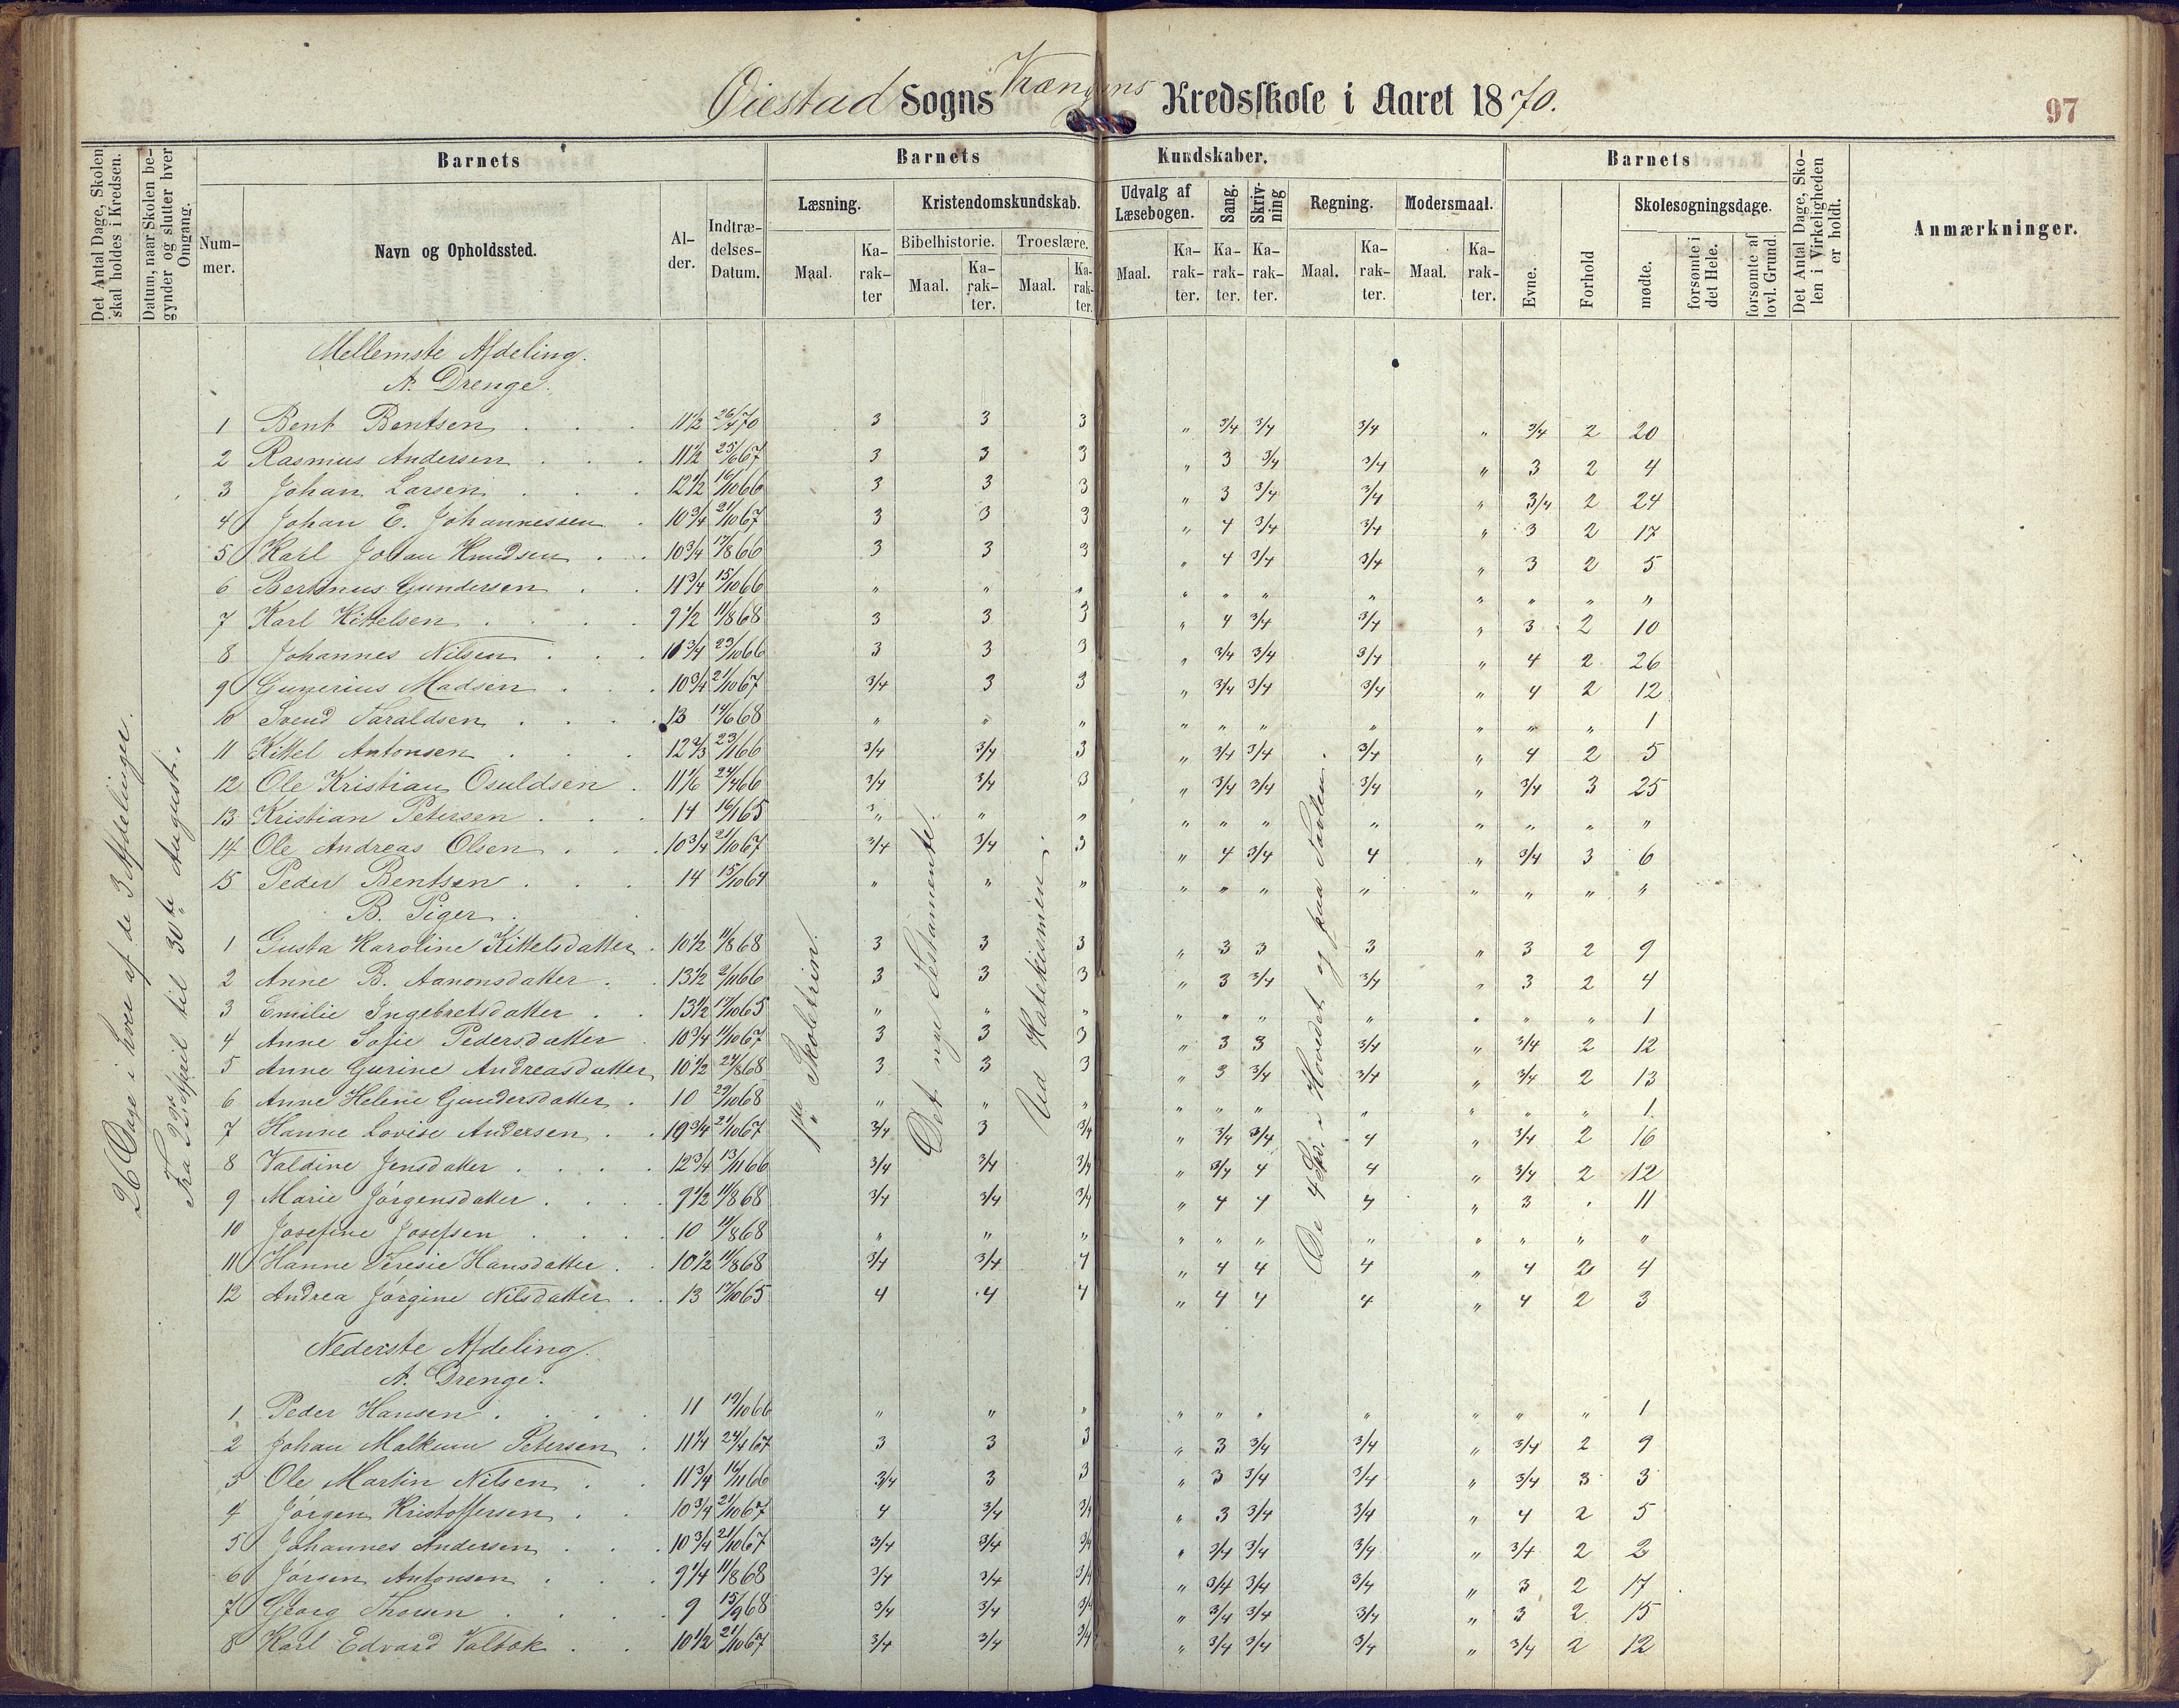 Øiestad Sogns Vrængens Kredsskole i Aaret 1870.
97
Det Antal Dage, Skolen skal holdes i Kredsen.
Datum, naar Skolen begynder og slutter hver Omgang.
Barnets
Nummer.
Navn og Opholdssted.
Alder.
Indtrædelses-Datum.
Barnets Kundskaber.
Læsning.
Maal.
Karakter
Kristendomskundskab.
Bibelhistorie.
Maal.
Karakter.
Troeslære.
Maal.
Karakter.
Udvalg af Læsebogen.
Maal.
Karakter.
Sang.
Karakter.
Skrivning
Karakter.
Regning.
Maal.
Karakter.
Modersmaal.
Maal.
Karakter.
Barnets
Evne.
Forhold
Skolesøgningsdage.
mødte.
forsømte i det Hele.
forsømte af lovl. Grund.
Det Antal Dage, Skolen i Virkeligheden er holdt.
Anmærkninger.
26 Dage i hver af de 3 Afdelinger.
til 30te August.
1ste Skoletrin.
Det nye Testamente.
Ud Katekismen.
De 4 Sp. i Hovedet og paa Tavlen.
Mellemste Afdeling.
A. Drenge.
1 Bent Bentsen 11 1/2 26/4 70 3 3 3 " 3/4 3/4 3/4 " 3/4 2 20
2 Rasmus Andersen 11 1/2 25/6 67 3 3 3 " 3 3/4 3/4 " 3 2 4
3 Johan Larsen 12 1/2 16/10 66 3 3 3 " 3 3/4 3/4 " 3/4 2 24
4 Johan E. Johannessen 10 3/4 21/10 67 3 3 3 " 4 3/4 3/4 " 3 2 17
5 Karl Johan Knudsen 10 3/4 17/8 66 3 3 3 " 4 3/4 3/4 " 3 2 5
6 Bertinus Gundersen 11 3/4 15/10 66 " " " " " " " " " " "
7 Karl Kittelsen 9 1/2 11/8 68 3 3 3 " 4 3/4 3/4 " 3 2 10
8 Johannes Nilsen 10 3/4 23/10 66 3 3 3 " 3/4 3/4 3/4 " 4 2 26
9 Gunerius Madsen 10 3/4 21/10 67 3/4 3 3 " 3/4 3/4 3/4 " 4 2 12
10 Svend Taraldsen 13 14/6 68 " " " " " " " " " " 1
11 Kittel Antonsen 12 2/3 23/1 66 3/4 3/4 3 " 3/4 3/4 3/4 " 4 2 5
12 Ole Kristian Osuldsen 11 1/6 24/4 66 3/4 3/4 3 " 3/4 3/4 3/4 " 3/4 3 25
13 Kristian Petersen 14 16/1 65 " " " " " " " " " " "
14 Ole Andreas Olsen 10 3/4 21/10 67 3/4 3/4 3 " 4 3/4 4 " 3/4 3 6
15 Peder Bentsen 14 15/10 64 " " " " " " " " " " "
B. Piger.
1 Gusta Karoline Kittelsdatter 10 1/2 11/8 68 3 3 3 " 3 3 3 " 3 2 9
2 Anne B. Aanonsdatter 13 1/2 2/11 66 3 3 3 " 3 3/4 3/4 " 3 2 4
3 Emilie Ingebretsdatter 13 1/2 17/10 65 " " " " " " " " " " 1
4 Anne Sofie Pedersdatter 10 3/4 11/10 67 3 3 3 " 3 3 3/4 " 3/4 2 12
5 Anne Gurine Andreasdatter 10 1/2 24/8 68 3 3 3 " 3 3/4 3/4 " 3/4 2 13
6 Anne Helene Gundersdatter 10 29/10 68 " " " " " " " " " " 1
7 Hanne Lovise Andersen 10 3/4 21/10 67 3/4 3 3/4 " 3/4 3/4 4 " 3/4 2 16
8 Valdine Jensdatter 12 3/4 13/11 66 3/4 3/4 3/4 " 3/4 4 4 " 3/4 2 12
9 Marie Jörgensdatter 9 1/2 11/8 68 3/4 3/4 3/4 " 4 4 4 " 3 " 11
10 Josefine Josefsen 10 11/8 68 " " " " " " " " " " "
11 Hanne Teresie Hansdatter 10 1/2 11/8 68 3/4 3/4 4 " 4 4 4 " 4 2 4
12 Andrea Jörgine Nilsdatter 13 17/10 65 4 4 4 " 4 4 4 " 4 2 3
Nederste Afdeling.
A. Drenge.
1 Peder Hansen 11 19/10 66 " " " " " " " " " " 1
2 Johan Malkum Petersen 11 1/4 24/4 67 3 3 3 " 3 3/4 3/4 " 3/4 2 9
3 Ole Martin Nilsen 11 3/4 16/11 66 3/4 3 3 " 3 3/4 3/4 " 3/4 3 3
4 Jörgen Kristoffersen 10 3/4 21/10 67 4 3/4 3/4 " 3 3/4 3/4 " 4 2 5
5 Johannes Andersen 10 3/4 21/10 67 3/4 3/4 3/4 " 3/4 3/4 3/4 " 3/4 2 2
6 Jörgen Antonsen 9 1/4 11/8 68 3/4 3/4 3/4 " 3/4 3/4 3/4 " 3 2 17
7 Georg Thorsen 9 15/9 68 3/4 3/4 3/4 " 3/4 3/4 3/4 " 3 2 15
8 Karl Edvard Valbok 10 1/2 21/10 67 3/4 3/4 3/4 " 3/4 3/4 3/4 " 3/4 2 12